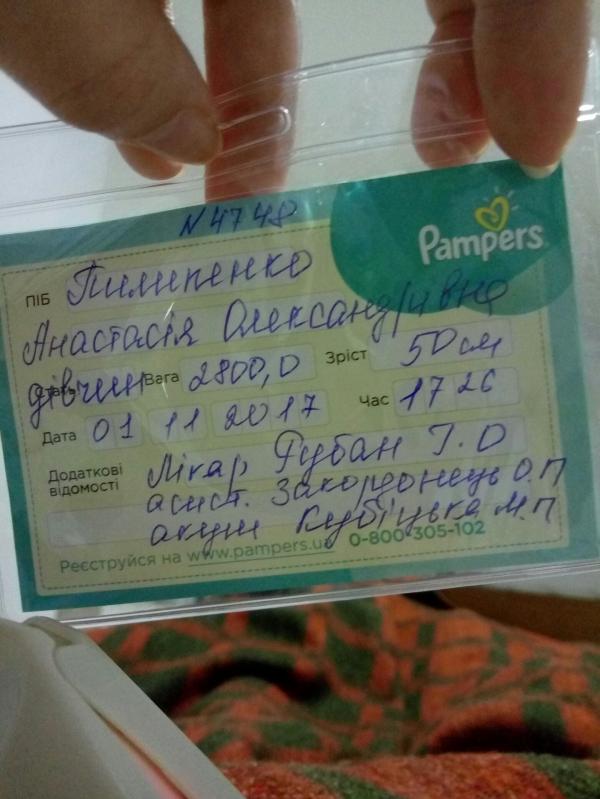 N 4748
Pampers
ПІБ Пилипенко
Анастасія Олександрівна
дівчин Вага 2800,0 Зріст 50 см
Дата 01 11 2017 Час 17 26
Додаткові відомості Лікар Рубан І.О
асист. Закордонець О.П
акуш Кубіцька М.П
Реєструйся на www.pampers.ua 0-800-305-102